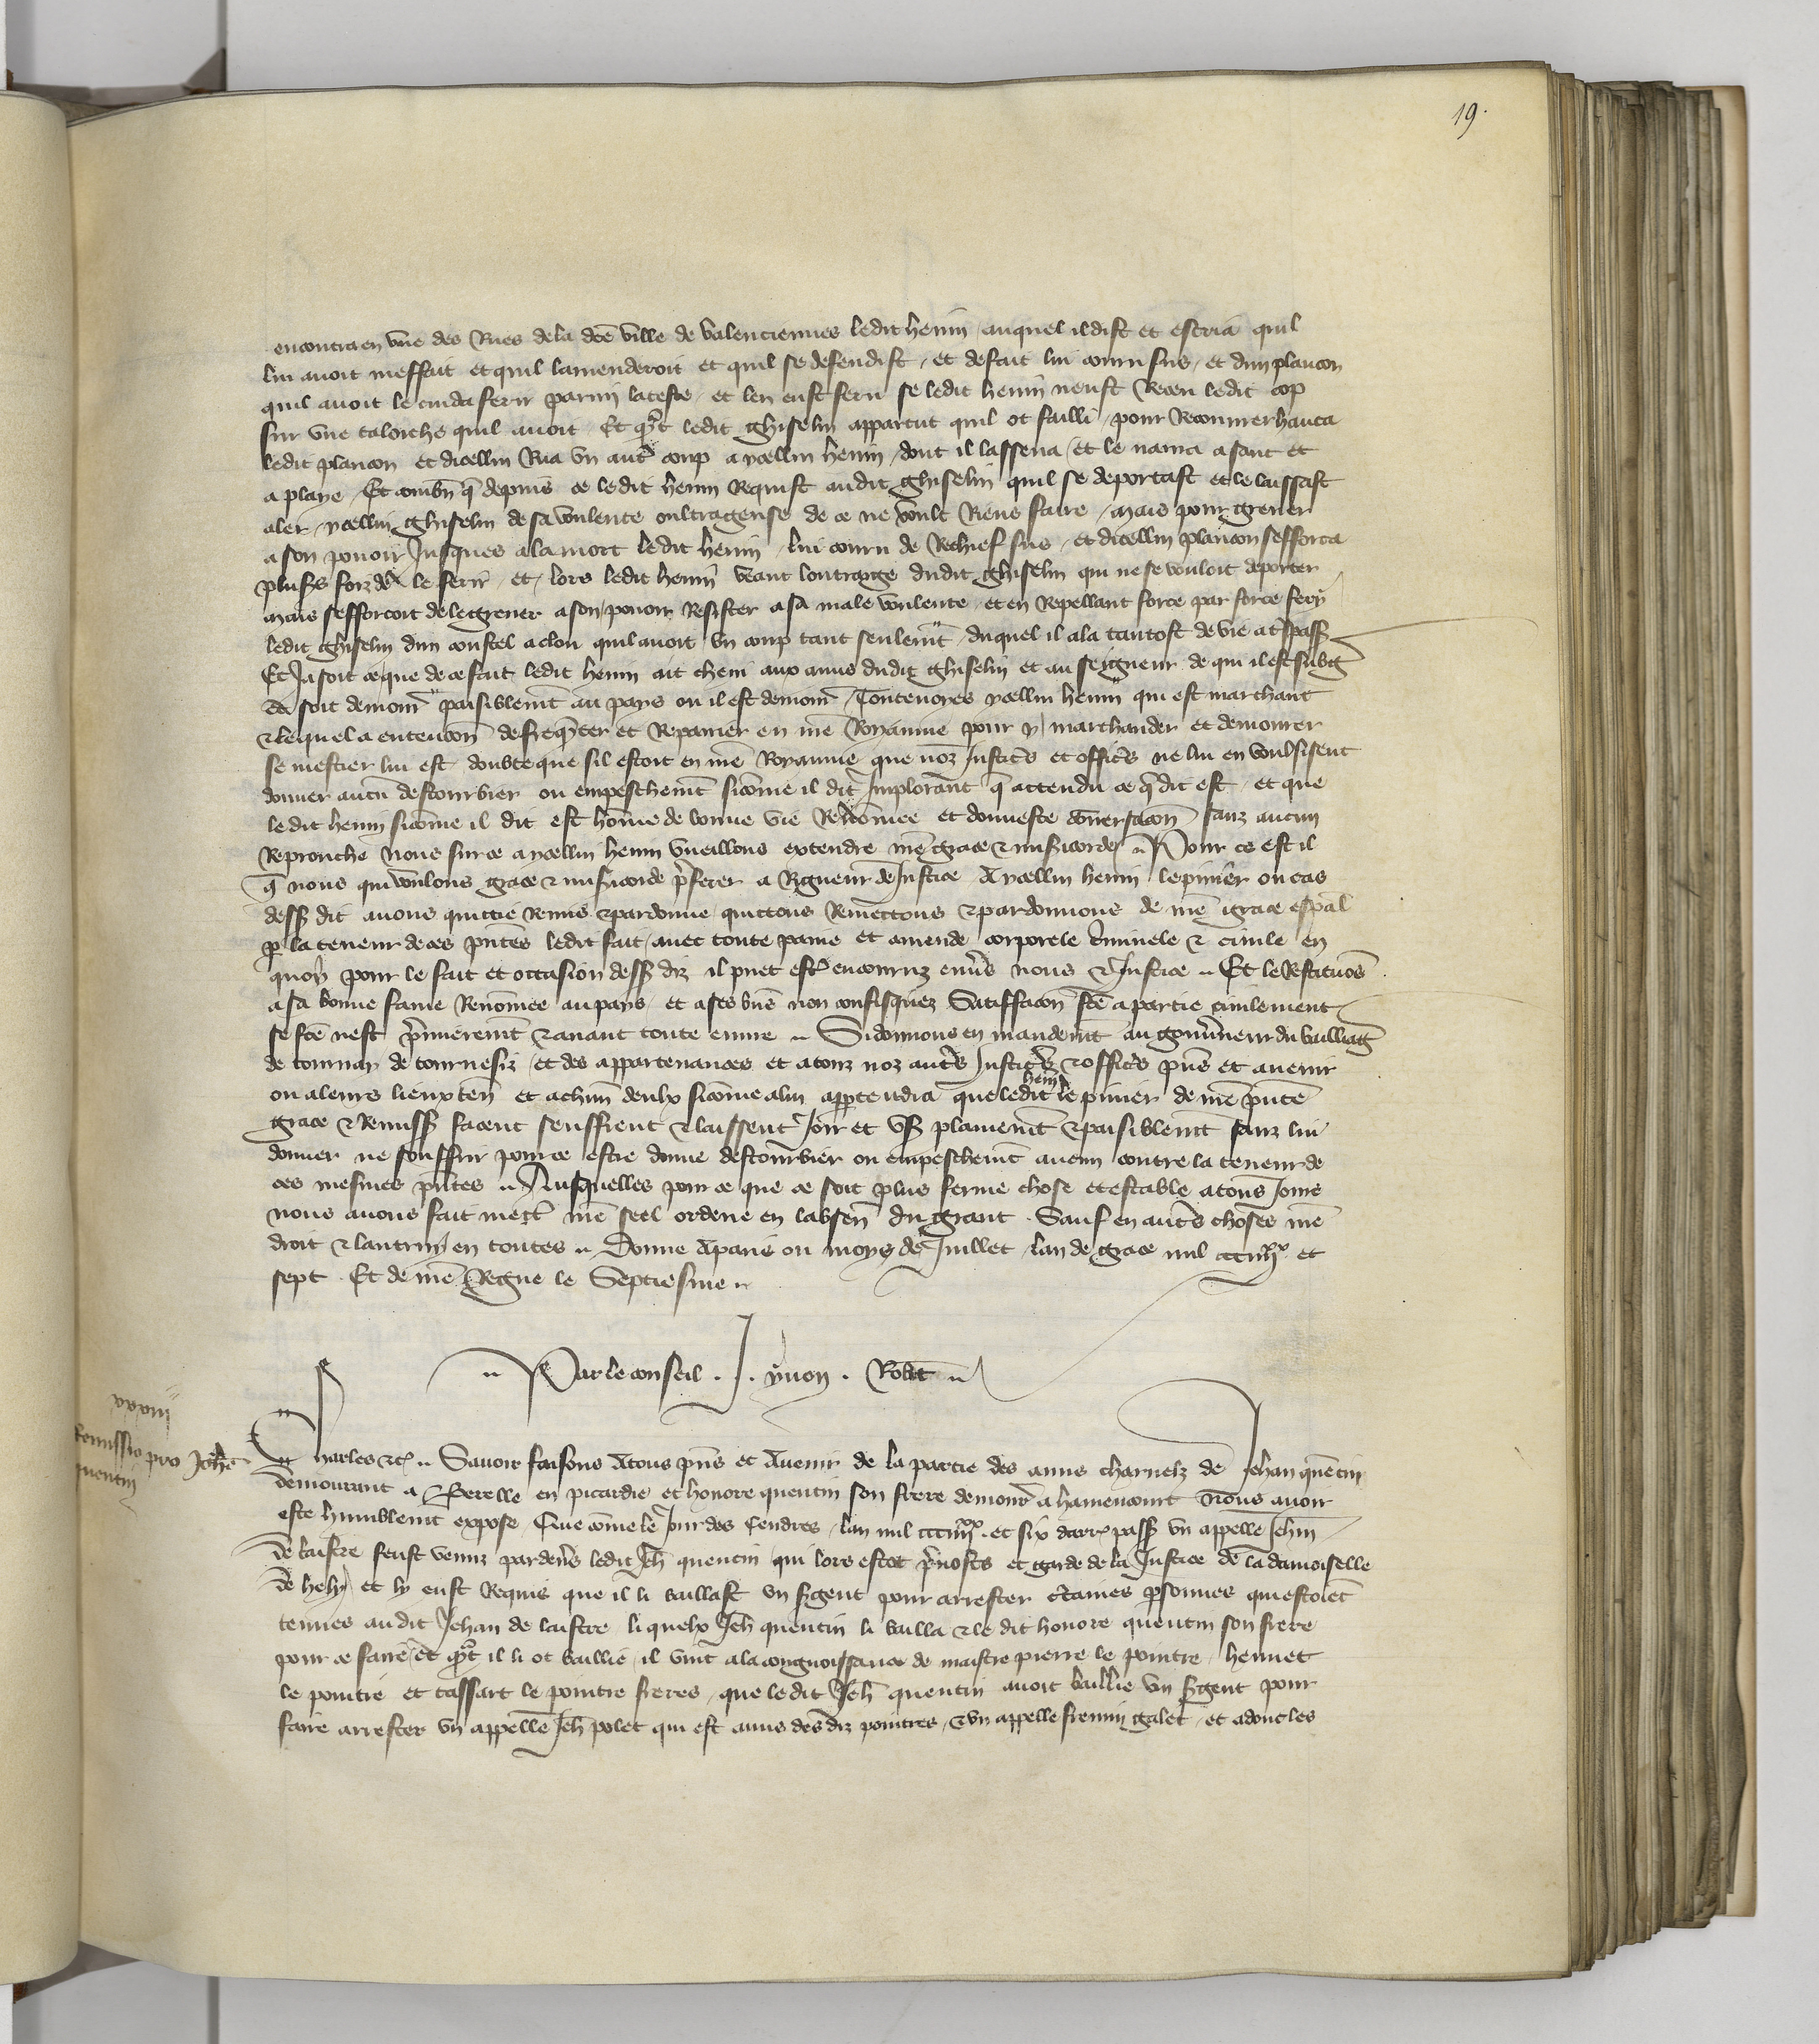 19.
encontra en vne des Rues de la dce ville de valenciennes ledit henin auquel il dist et escria quil
lui auoit meffait et quil lamenderoit et quil se defendist, et de fait lui couru sus, et dun plancon
quil auoit le cuida ferir parmi la teste, et len eust feru se ledit henin neust Receu ledit cop
sur vne taloiche quil auoit. Et qnt ledit ghiselin apparcut quil ot failli, pour Recouurer hauca
ledit plancon et dicellui Rua vn autre coup a ycellui henin, dont il lassena, et le naura a sanc et
a playe, Et combn q depuis ce ledit henin Requist audit ghiselin quil se deportast et le laissast
aler, ycellui ghiselin de sa voulente oultrageuse de ce ne voult Riens faire, mais pour greuer
a son pouoir Jusques a la mort ledit henin, lui couru de Rechief sus, et dicellui plancon sefforca
plusrs foiz de le ferir, et lors ledit henin veant loutrage dudit ghiselin qui ne se vouloit deporter
mais sefforcoit de le greuer a son pouoir Resister a sa male voulente, et en Repellant force par force fery
ledit ghiselin dun coustel a clou quil auoit vn coup tant seulemt, duquel il ala tantost de vie a trespass
Et Ja soit ce que de ce fait ledit henin ait cheui aux amis dudit ghiselin et au seigneur de qui il est subg
et soit demour paisiblemt au pays ou il est demour, Touteuoyes ycellui henin qui est marchant
& lequel a entencon de freqnter et Repairier en nre Royaume pour y marchander et demourer
se mestier lui est doubte que sil estoit en nre Royaume que noz Justices et offices ne lui en voulsissent
donner aucun destourbier ou empeschemt sicome il dit Implorant q attendu ce q dit est, et que
ledit henin sicome il dit est home de bonne vie Renomee et donneste conuersacon sanz aucun
Reprouche Nous sur ce a ycellui henin vueillons extendre nre grace & misicorde Pour ce est il
q nous qui voulons grace & misicorde pferer a Rigueur de Justice A ycellui henin le pinier ou cas
dess dit auons quittie Remis & pardonne, quittons Remettons & pardonnons de nre grace espal
p la teneur de ces pntes ledit fait, auec toute paine et amende corporele criminele & ciuile en
quoy pour le fait et occasion dess diz il puet estre encouruz enuers nous & Justice Et le Restituons
a sa bonne fame Renomee au pays, et a ses biens non confisquez Satisfacon fce a partie ciuilement
se fce nest primieremt & auant toute euure Si donnons en mandemt au gouuneur du bailliage
de tournay de tournesiz, et des appartenances et a touz noz autres Justiciers & officers pns et auenir
ou a leurs lieuxten et a chun deulx sicome a lui appartendra que ledit henin le pinier de nre pnte
grace & Remiss facent seuffrent & laissent Joir et vser plainemt & paisiblemt sanz lui
donner ne souffrir pour ce estre donne destourbier ou empeschemt aucun contre la teneur de
ces mesmes pntes Ausquelles pour ce que ce soit plus ferme chose et estable a tous Jours
nous auons fait mectre nre seel ordene en labsence du grant. Sauf en autres choses nre
droit & lautruy en toutes Donne A paris ou moys de Juillet lan de grace mil cccIIIIxx et
sept. Et de nre Regne le Septiesme
Par le conseil. J. yuon. Robt
xxxiii
Remissio pro Johe
quentin
Charles &c Sauoir faisons A tous pns et Auenir de la partie des amis charnelz de Jehan quentin
demourant a Sberelle en picardie et honore quentin son frere demour a hamencourt Nous auoir
este humblemt expose, Que come le Jour des Cendres, lan mil cccIIIIxx et six derr passe vn appelle Jehan
de laistre feust venuz pardeuers ledit Jeh quentin, qui lors estoit preuosts et garde de la Justice de la damoiselle
de hely, et ly eust Requis que il li baillast vn sergent pour arrester certaines psonnes qui estoient
tenues audit Jehan de laistre li quelx Jeh quentin li bailla & le dit honore quentin son frere
pour ce faire, et qnt il li ot baillie, il vint a la congnoissance de maistre pierre le pointre, hennet
le pointre et tassart le pointre freres, que ledit Jeh quentin auoit baillie vn sergent pour
faire arrester vn appelle Jeh polet qui est amis des diz pointres, & vn appelle fremin galet, et adonc les